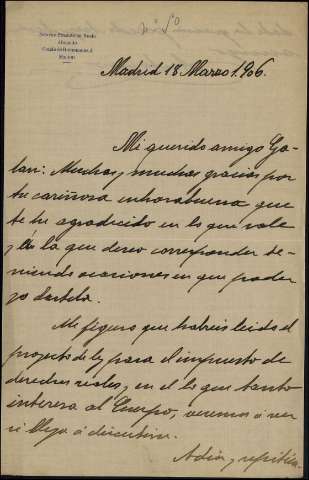 Madrid 18 Marzo 1.906.
Mi querido amigo Ga-
lari: Muchas, muchas gracias por
tu cariñosa enhorabuena que
te he agradecido en lo que vale
y á la que deseo corresponder te-
niendo ocasiones en que poder
yo dartela.
Me figuro que habrás leido el
proyecto de ley para el impuesto de
derechos reales, en el lo que tanto
interesa al Cuerpo, veremos á ver
si llega á discutirse.
Adios, y repitien